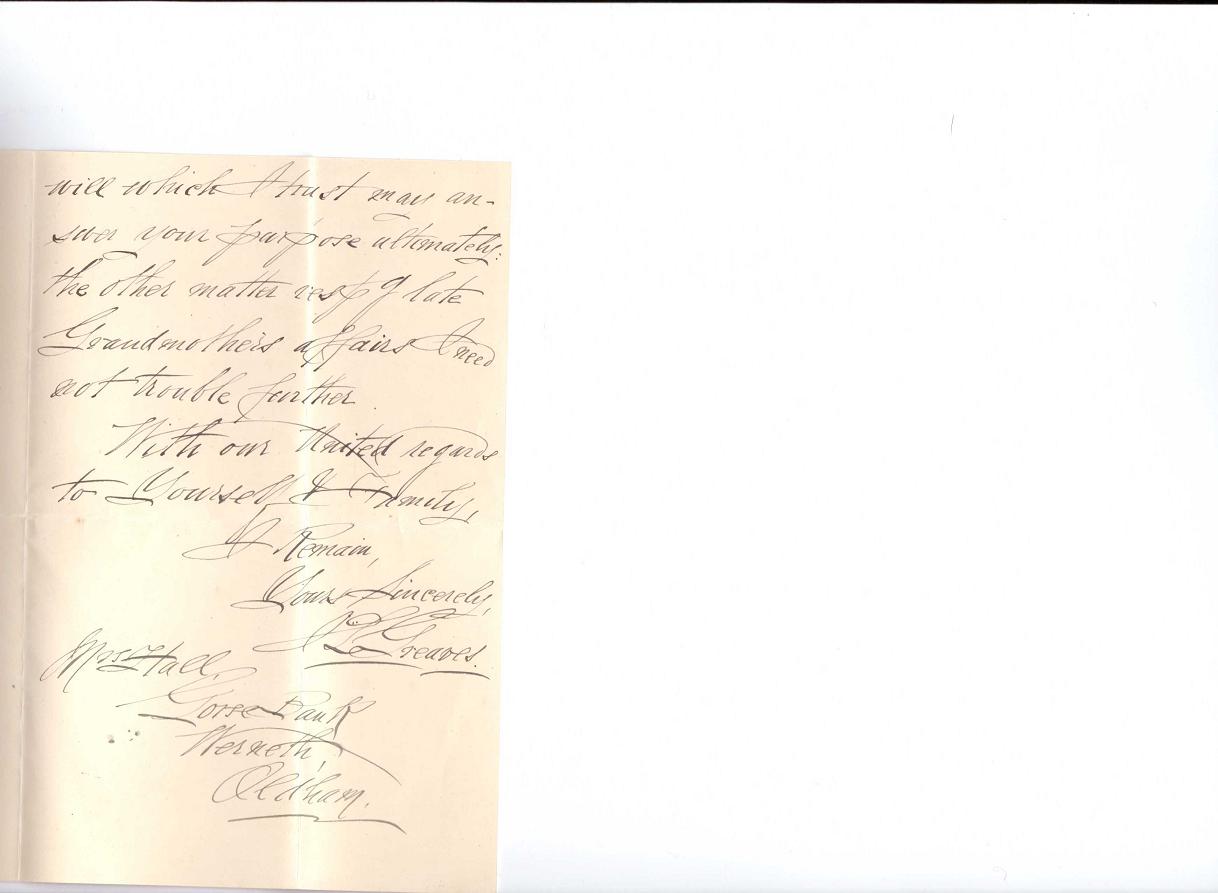 will which I trust may an-
swer your purpose ultimately:
the other matter resp g late
Grandmother's affairs I need
not trouble further.
With our United regards
to Yourself & Family,
I Remain,
Yours Sincerely,
Greaves.
Mrs Hall
Gorse Bank
Werneth,
Oldham.